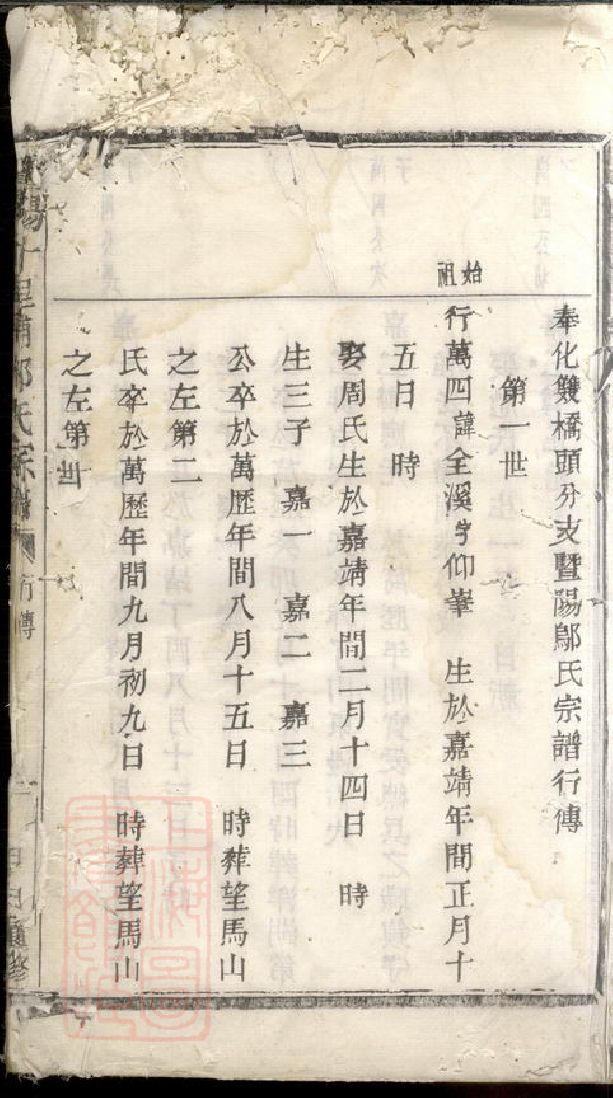 奉化雙橋頭分支暨陽鄔氏宗譜行傳
第一世
始祖
行萬四諱全溪字仰峯 生於嘉靖年間正月十
五日 時
娶周氏生於嘉靖年間二月十四日 時
生三子 嘉一 嘉二 嘉三
公卒於萬歷年間八月十五日 時葬望馬山
之左第二
氏卒於萬歷年間九月初九日 時葬望馬山
之左第
陽十里鋪鄔氏宗譜
行傳